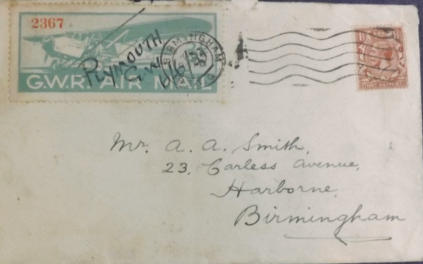 2367
PLYMOUTH
G.W.R. AIR MAIL
BIRMINGHAM
Mr. A. A. Smith,
23, Carless Avenue,
Harborne,
Birmingham